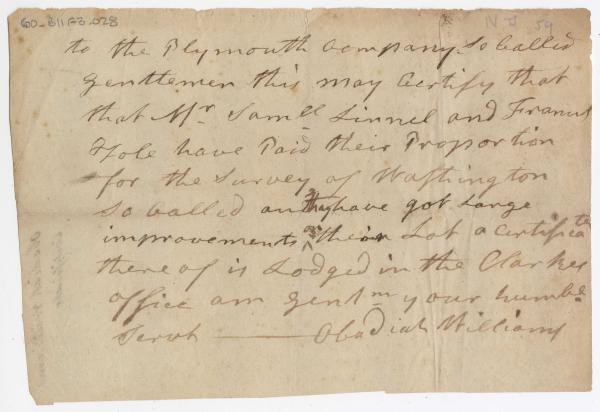 60-B11F3-028
N J 59
to the Plymouth Company. So Called
Gentlemen this may Certify that
that Mr. Samll Linnel and Francis
Hole have Paid their Proportion
for the Survey of Washington
So Called an they have got Large
improvements on their Lot a Certificate
there of is Lodged in the Clarkes
office am Gentm your humbe
Servt — Obadiah Williams